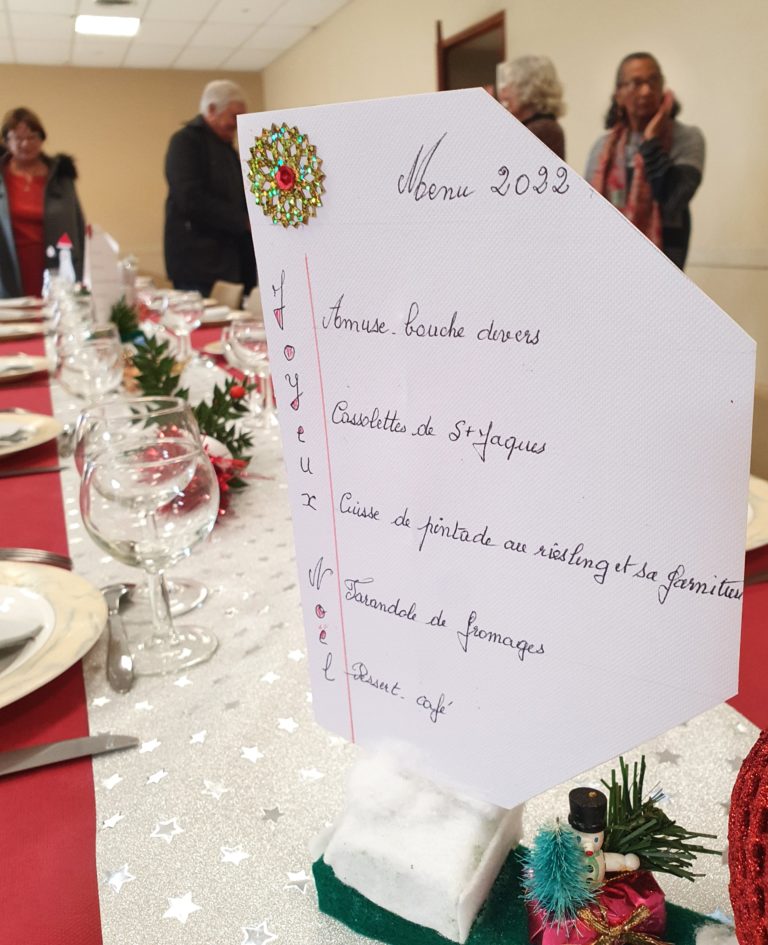 Menu 2022
Joyeux Noël
Amuse-bouche divers
Cassolettes de St Jaques
Cuisse de pintade au riesling et sa garniture
Farandole de fromages
Dessert-café